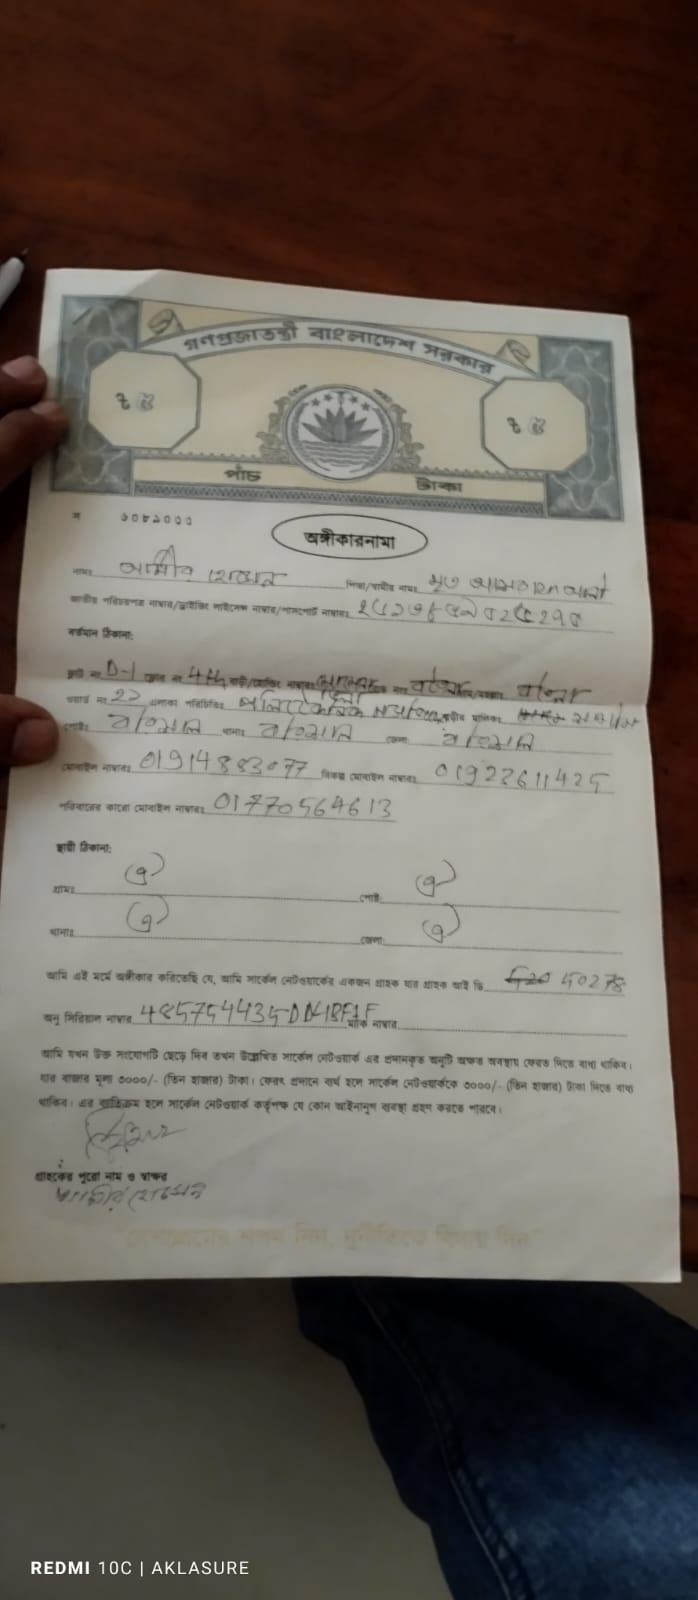 গণপ্রজাতন্ত্রী বাংলাদেশ সরকার
৳ ৫
৳ ৫
পাঁচ টাকা
অঙ্গীকারনামা
নামঃ আমীর হোসেন পিতা/স্বামীর নামঃ মৃত
জাতীয় পরিচয়পত্র নাম্বার/ড্রাইভিং লাইসেন্স নাম্বার/পাসপোর্ট নাম্বারঃ
বর্তমান ঠিকানা:
ফ্ল্যাট নং D-1 ফ্লোর নং 4th বাড়ী/হোল্ডিং নাম্বারঃ
ওয়ার্ড নং 22 এলাকা পরিচিতিঃ বাড়ীর মালিকঃ
পোষ্টঃ বরিশাল থানাঃ বরিশাল জেলাঃ বরিশাল
মোবাইল নাম্বারঃ 01914883077 বিকল্প মোবাইল নাম্বারঃ 01922611425
পরিবারের কারো মোবাইল নাম্বারঃ 01770564613
স্থায়ী ঠিকানা:
গ্রামঃ ঐ পোষ্টঃ ঐ
থানাঃ ঐ জেলাঃ ঐ
আমি এই মর্মে অঙ্গীকার করিতেছি যে, আমি সার্কেল নেটওয়ার্কের একজন গ্রাহক যার গ্রাহক আই ডি 50278
অনু সিরিয়াল নাম্বার 485754435DD41BF1F ম্যাক নাম্বার
আমি যখন উক্ত সংযোগটি ছেড়ে দিব তখন উল্লেখিত সার্কেল নেটওয়ার্ক এর প্রদানকৃত অনুটি অক্ষর অবস্থায় ফেরত দিতে বাধ্য থাকিব।
যার বাজার মূল্য ৩০০০/- (তিন হাজার) টাকা। ফেরৎ প্রদানে ব্যর্থ হলে সার্কেল নেটওয়ার্ককে ৩০০০/- (তিন হাজার) টাকা দিতে বাধ্য
থাকিব। এর ব্যতিক্রম হলে সার্কেল নেটওয়ার্ক কর্তৃপক্ষ যে কোন আইনানুগ ব্যবস্থা গ্রহণ করতে পারবে।
গ্রাহকের পুরো নাম ও স্বাক্ষর
আমীর হোসেন
REDMI 10C | AKLASURE